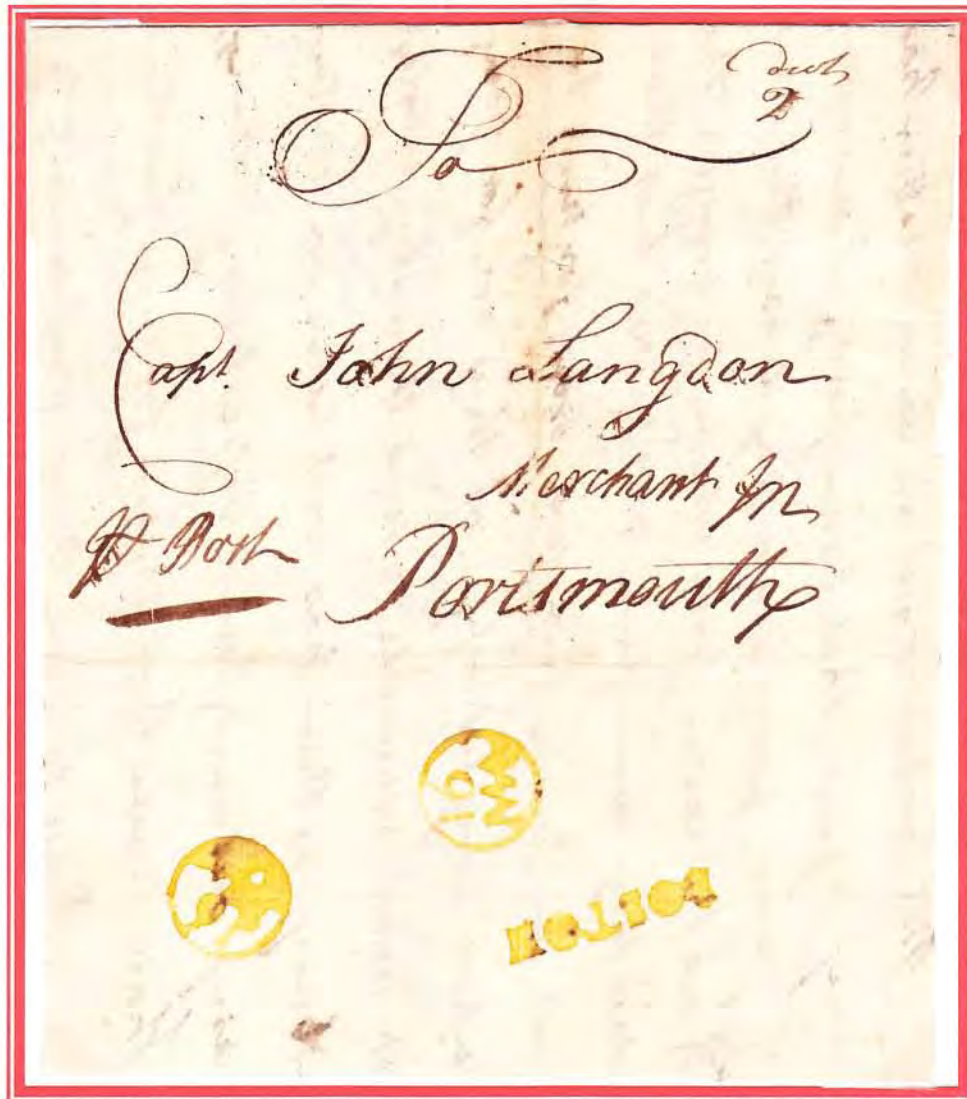 dwt
2
To
Capt. John Langdon
Merchant In
⅌ Post Portsmouth
BOSTON